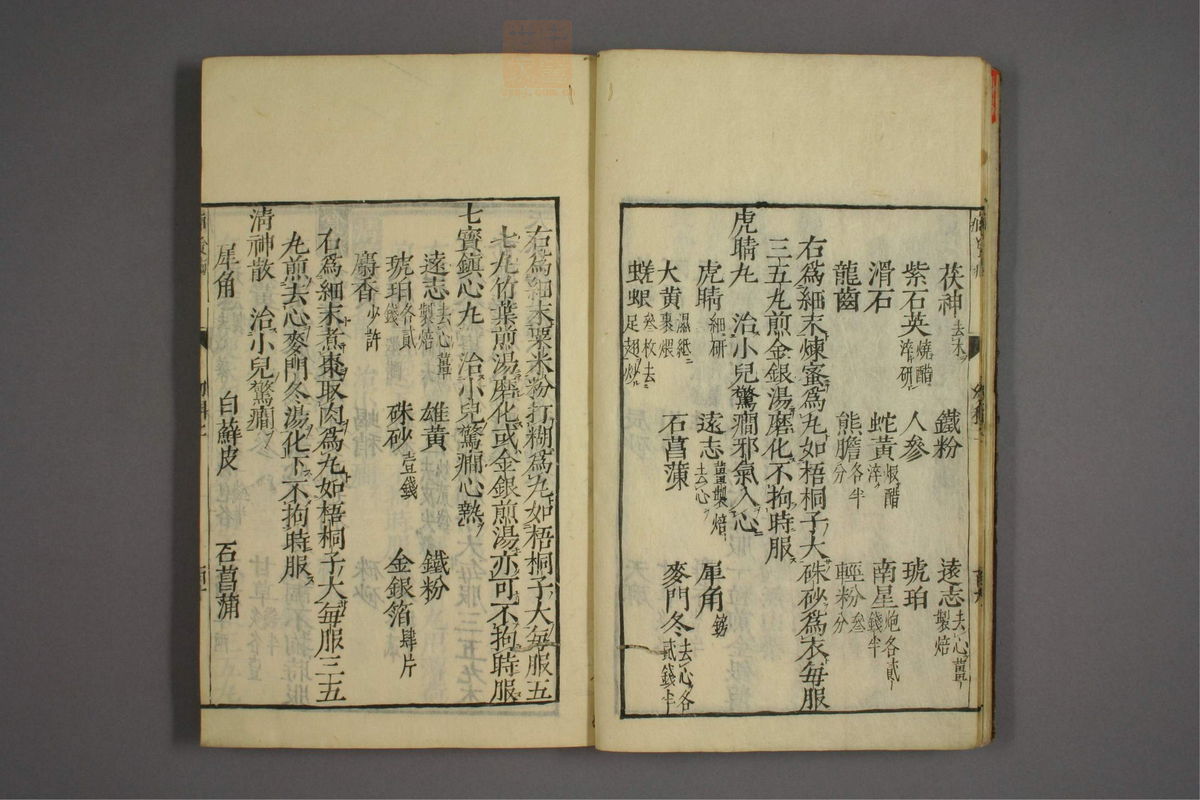 茯神去木 鐵粉 遠志去心薑製焙
紫石英燒醋淬研 人參 琥珀
滑石 蛇黃煅醋淬 南星炮各貳錢半
龍齒 熊膽各半分 輕粉叁分
右爲細末煉蜜爲丸如梧桐子大硃砂爲衣每服
三五丸煎金銀湯磨化不拘時服
虎睛丸 治小兒驚癎邪氣入心
虎睛細研 遠志薑製焙去心 犀角鎊
大黃濕紙裹煨 石菖蒲 麥門冬去心各貳錢半
蜣螂叁枚去足翅炒
右爲細末粟米粉打糊爲丸如梧桐子大每服五
七丸竹葉煎湯磨化或金銀煎湯亦可不拘時服
七寳鎮心丸 治小兒驚癎心熱
遠志去心薑製焙 雄黃 鐵粉
琥珀各貳錢 硃砂壹錢 金銀箔肆片
麝香少許
右爲細末煮棗取肉爲丸如梧桐子大每服三五
丸煎去心麥門冬湯化下不拘時服
清神散 治小兒驚癎
犀角 白蘚皮 石菖蒲